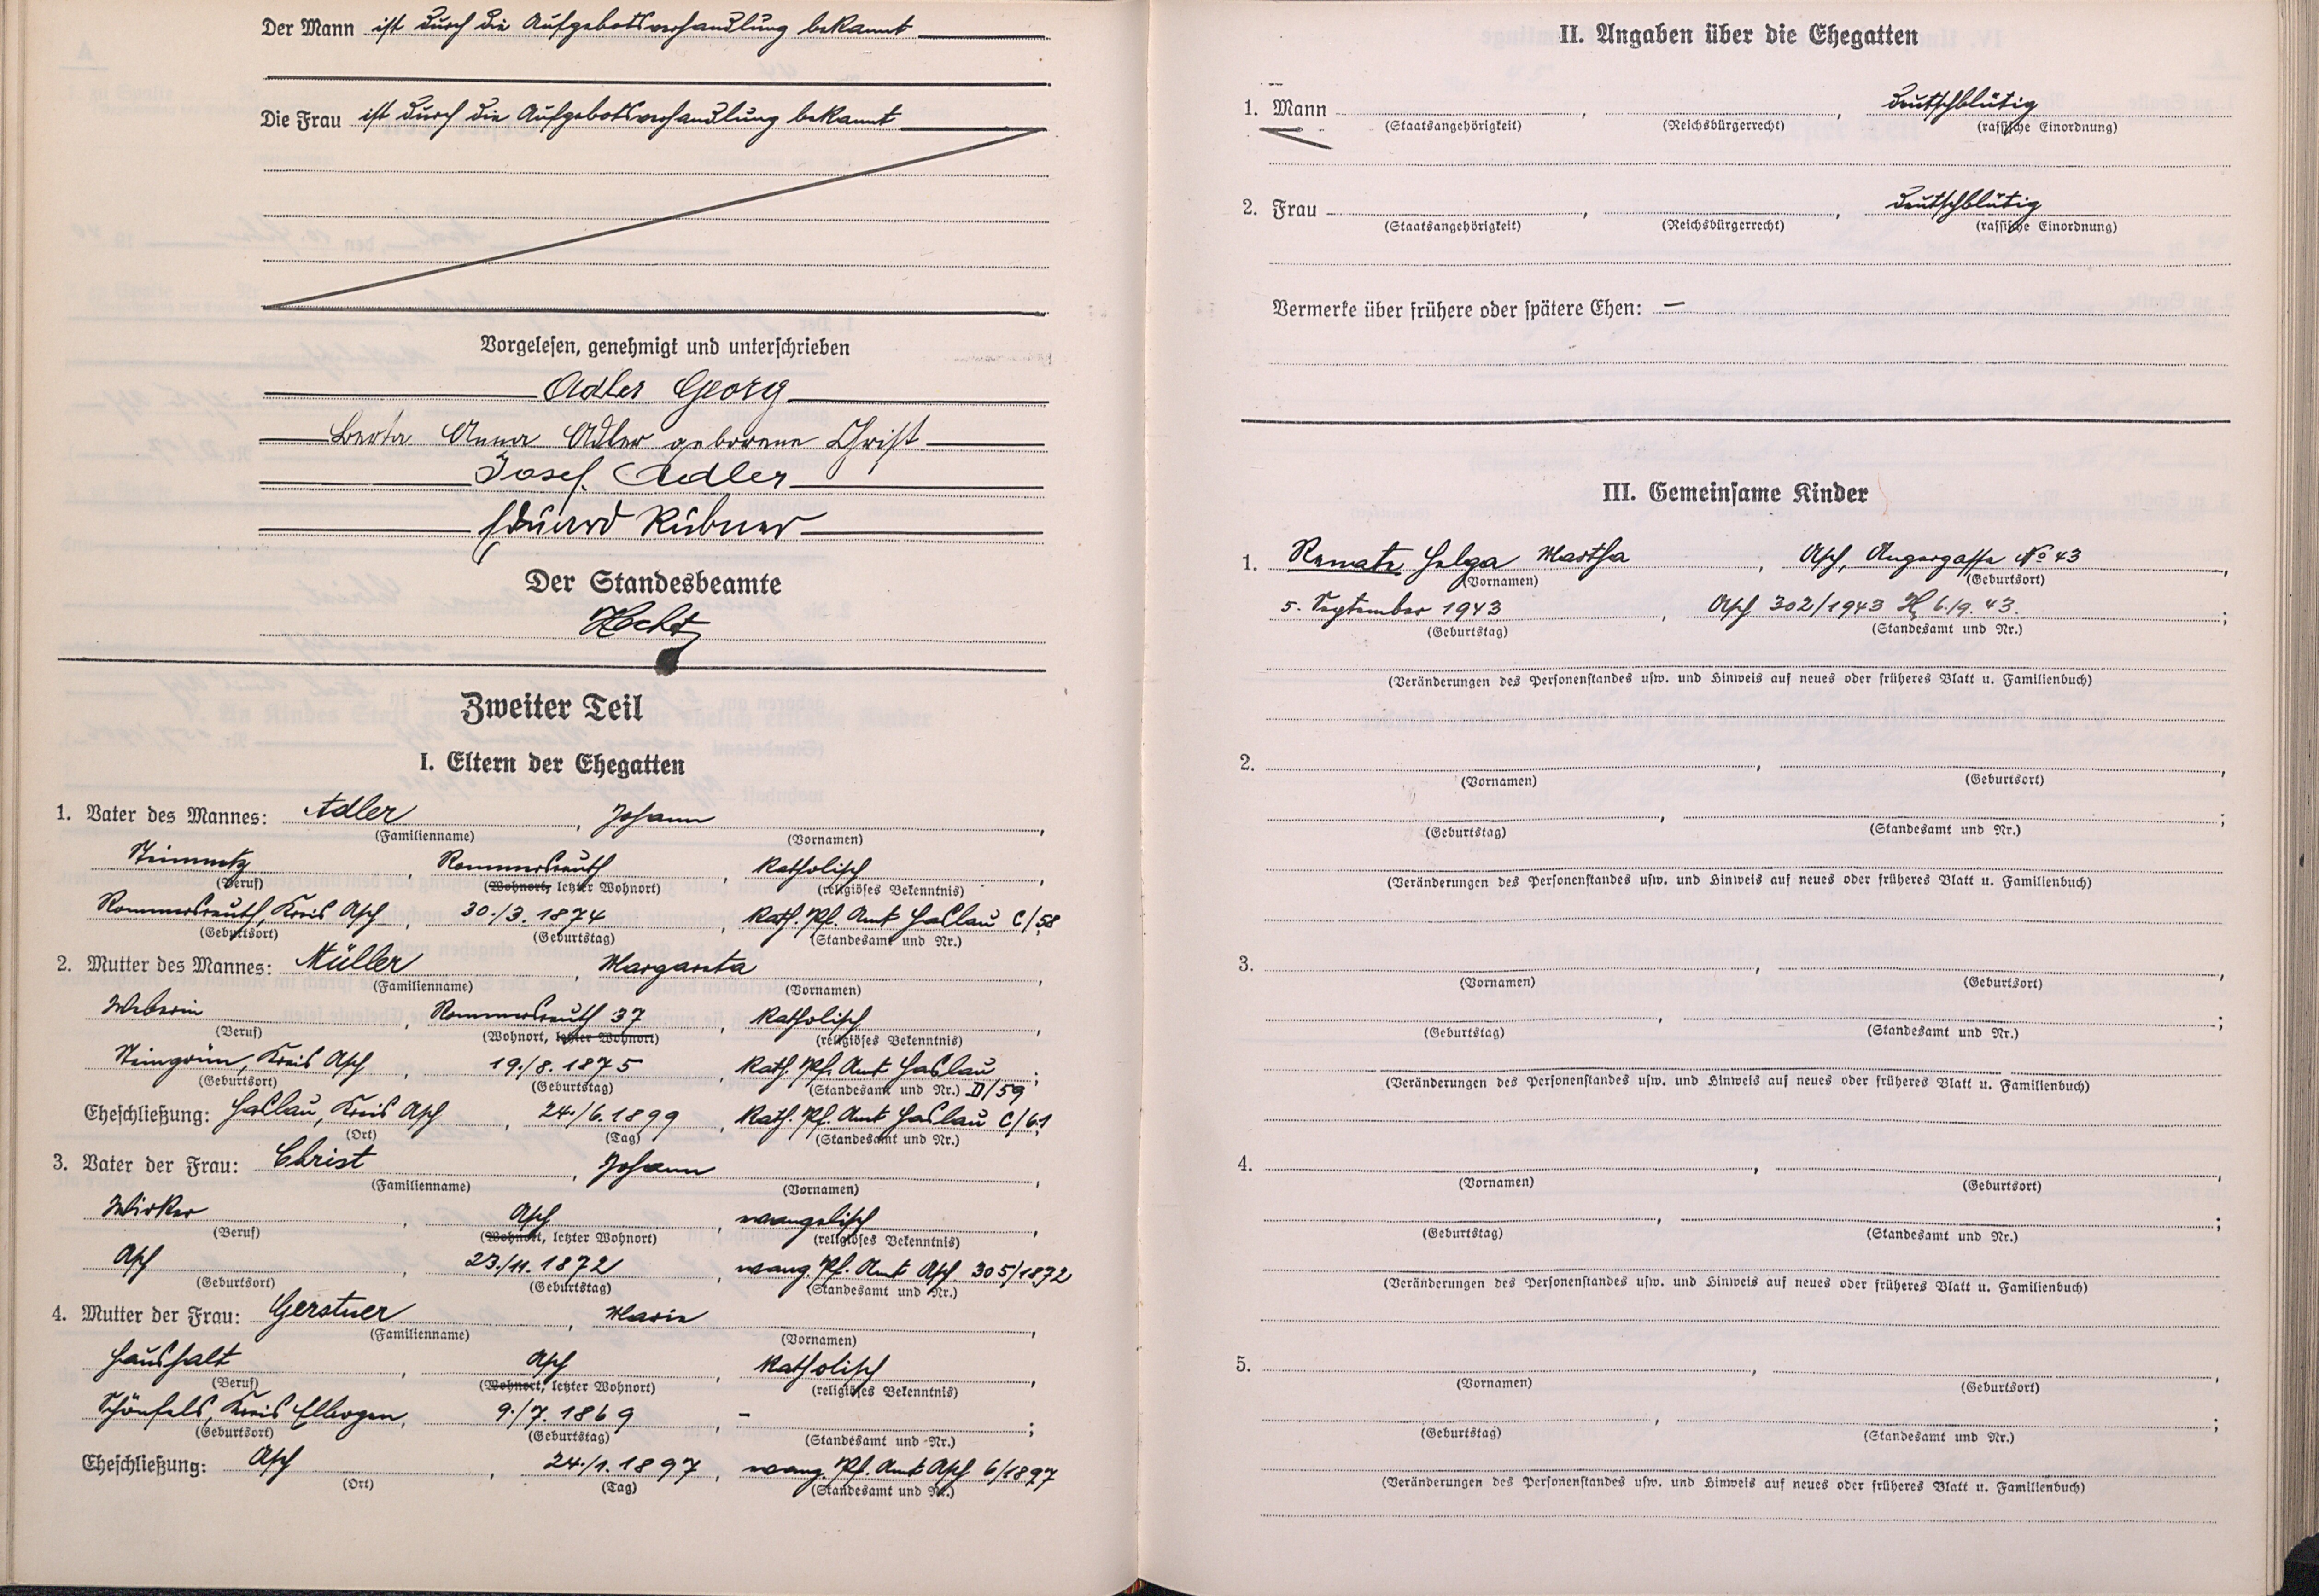 Der Mann ist durch die Aufgebotsverhandlung bekannt
Die Frau ist durch die Aufgebotsverhandlung bekannt
Vorgelesen, genehmigt und unterschrieben
Adler Georg
Berta Anna Adler geborene Christ
Josef Adler
Eduard Rübner
Der Standesbeamte
Hecht
Zweiter Teil
I. Eltern der Ehegatten
1. Vater des Mannes: Adler, Johann,
(Familienname) (Vornamen)
Steinmetz, Rommersreuth, katholisch,
(Beruf) (Wohnort, letzter Wohnort) (religiöses Bekenntnis)
Rommersreuth, Kreis Asch, 30./3. 1874, Kath. Pf. Amt Haslau C/58
(Geburtsort) (Geburtstag) (Standesamt und Nr.)
2. Mutter des Mannes: Müller, Margareta,
(Familienname) (Vornamen)
Weberin, Rommersreuth 37, katholisch,
(Beruf) (Wohnort, letzter Wohnort) (religiöses Bekenntnis)
Steingrün, Kreis Asch, 19./8. 1875, Kath. Pf. Amt Haslau;
(Geburtsort) (Geburtstag) (Standesamt und Nr.) D/59
Eheschließung: Haslau, Kreis Asch, 24./6. 1899, Kath. Pf. Amt Haslau C/61
(Ort) (Tag) (Standesamt und Nr.)
3. Vater der Frau: Christ, Johann,
(Familienname) (Vornamen)
Wirker, Asch, evangelisch,
(Beruf) (Wohnort, letzter Wohnort) (religiöses Bekenntnis)
Asch, 23./11. 1872, evang. Pf. Amt Asch 305/1872
(Geburtsort) (Geburtstag) (Standesamt und Nr.)
4. Mutter der Frau: Gerstner, Marie,
(Familienname) (Vornamen)
Haushalt, Asch, katholisch,
(Beruf) (Wohnort, letzter Wohnort) (religiöses Bekenntnis)
Schönfels, Kreis Elbogen, 9./7. 1869, -;
(Geburtsort) (Geburtstag) (Standesamt und Nr.)
Eheschließung: Asch, 24./1. 1897, evang. Pf. Amt Asch 6/1897
(Ort) (Tag) (Standesamt und Nr.)
II. Angaben über die Ehegatten
1. Mann, , deutschblütig
(Staatsangehörigkeit) (Reichsbürgerrecht) (rassische Einordnung)
2. Frau, , deutschblütig
(Staatsangehörigkeit) (Reichsbürgerrecht) (rassische Einordnung)
Vermerke über frühere oder spätere Ehen: —
III. Gemeinsame Kinder
1. Renate Helga Martha, Asch, Angergasse No 43,
(Vornamen) (Geburtsort)
5. September 1943, Asch 302/1943 H 6./9. 43.;
(Geburtstag) (Standesamt und Nr.)
(Veränderungen des Personenstandes usw. und Hinweis auf neues oder früheres Blatt u. Familienbuch)
2. , ,
(Vornamen) (Geburtsort)
, ;
(Geburtstag) (Standesamt und Nr.)
(Veränderungen des Personenstandes usw. und Hinweis auf neues oder früheres Blatt u. Familienbuch)
3. , ,
(Vornamen) (Geburtsort)
, ;
(Geburtstag) (Standesamt und Nr.)
(Veränderungen des Personenstandes usw. und Hinweis auf neues oder früheres Blatt u. Familienbuch)
4. , ,
(Vornamen) (Geburtsort)
, ;
(Geburtstag) (Standesamt und Nr.)
(Veränderungen des Personenstandes usw. und Hinweis auf neues oder früheres Blatt u. Familienbuch)
5. , ,
(Vornamen) (Geburtsort)
, ;
(Geburtstag) (Standesamt und Nr.)
(Veränderungen des Personenstandes usw. und Hinweis auf neues oder früheres Blatt u. Familienbuch)